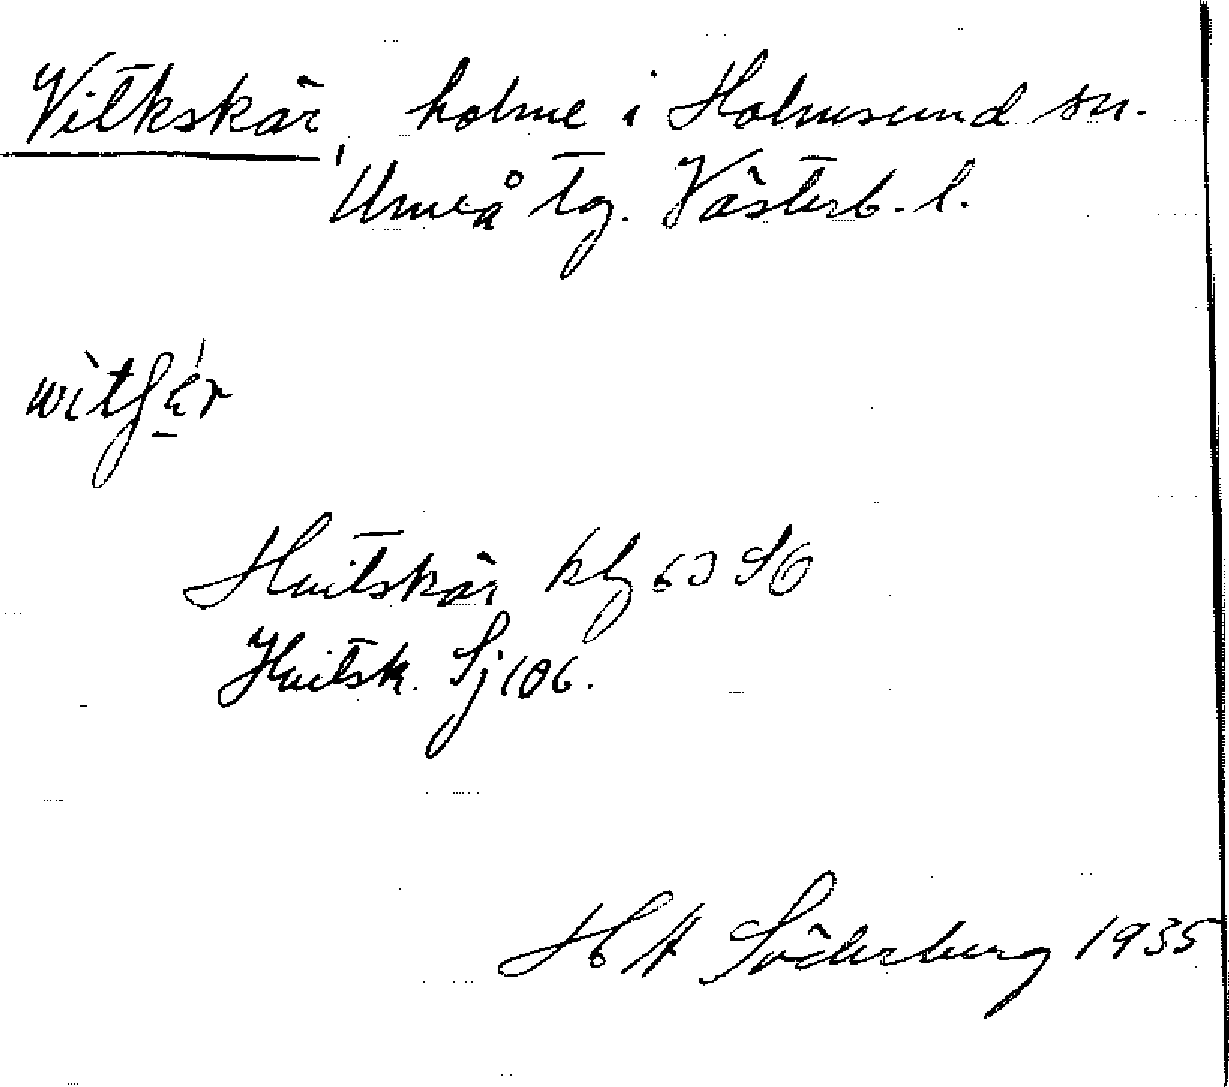 Vitkskär, holme i Holmsund sn.
Umeå tg. Västerb. l.
Hvitskär 63 SO
Hvitsk. Sj 106.
H A Söderberg 1935